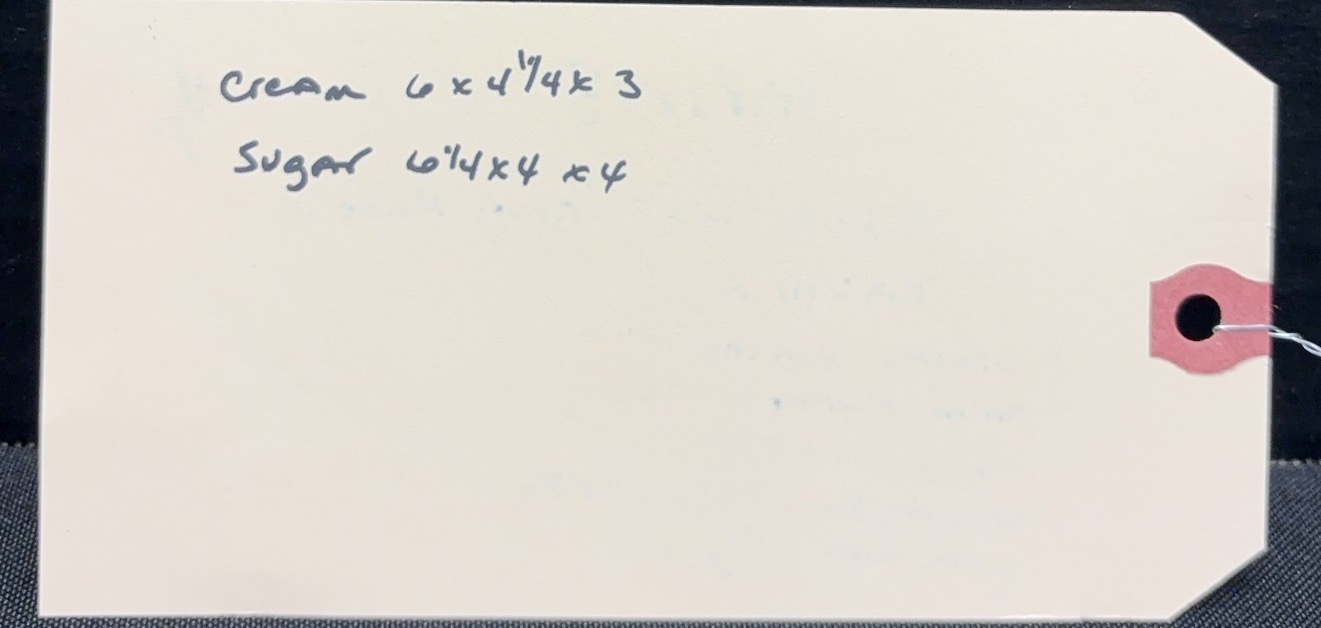 Cream 6 x 4 1/4 x 3
Sugar 6 1/4 x 4 x 4